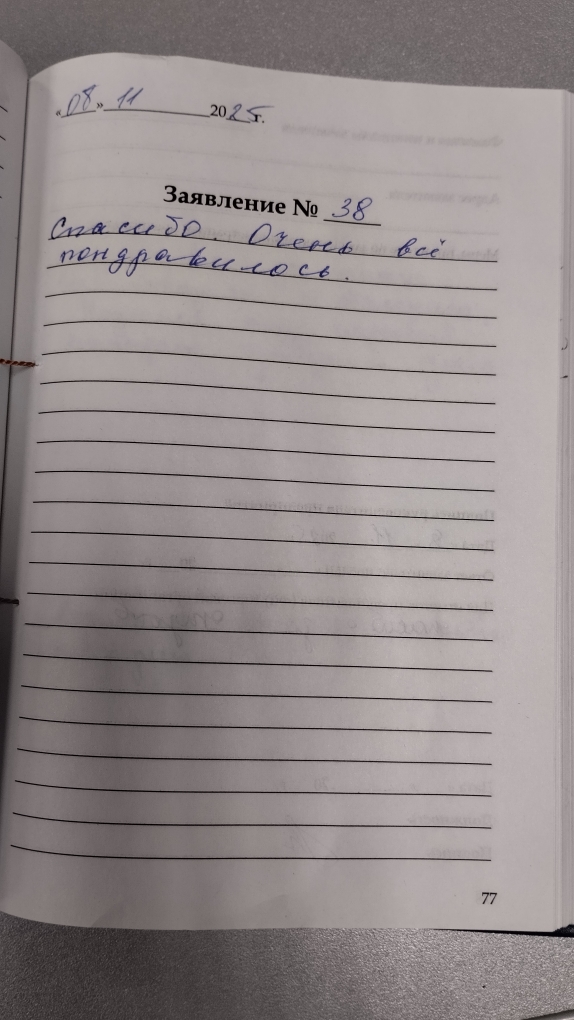 «08» 11 2025г.
Заявление № 38
Спасибо. Очень всё
пондравилось.
77